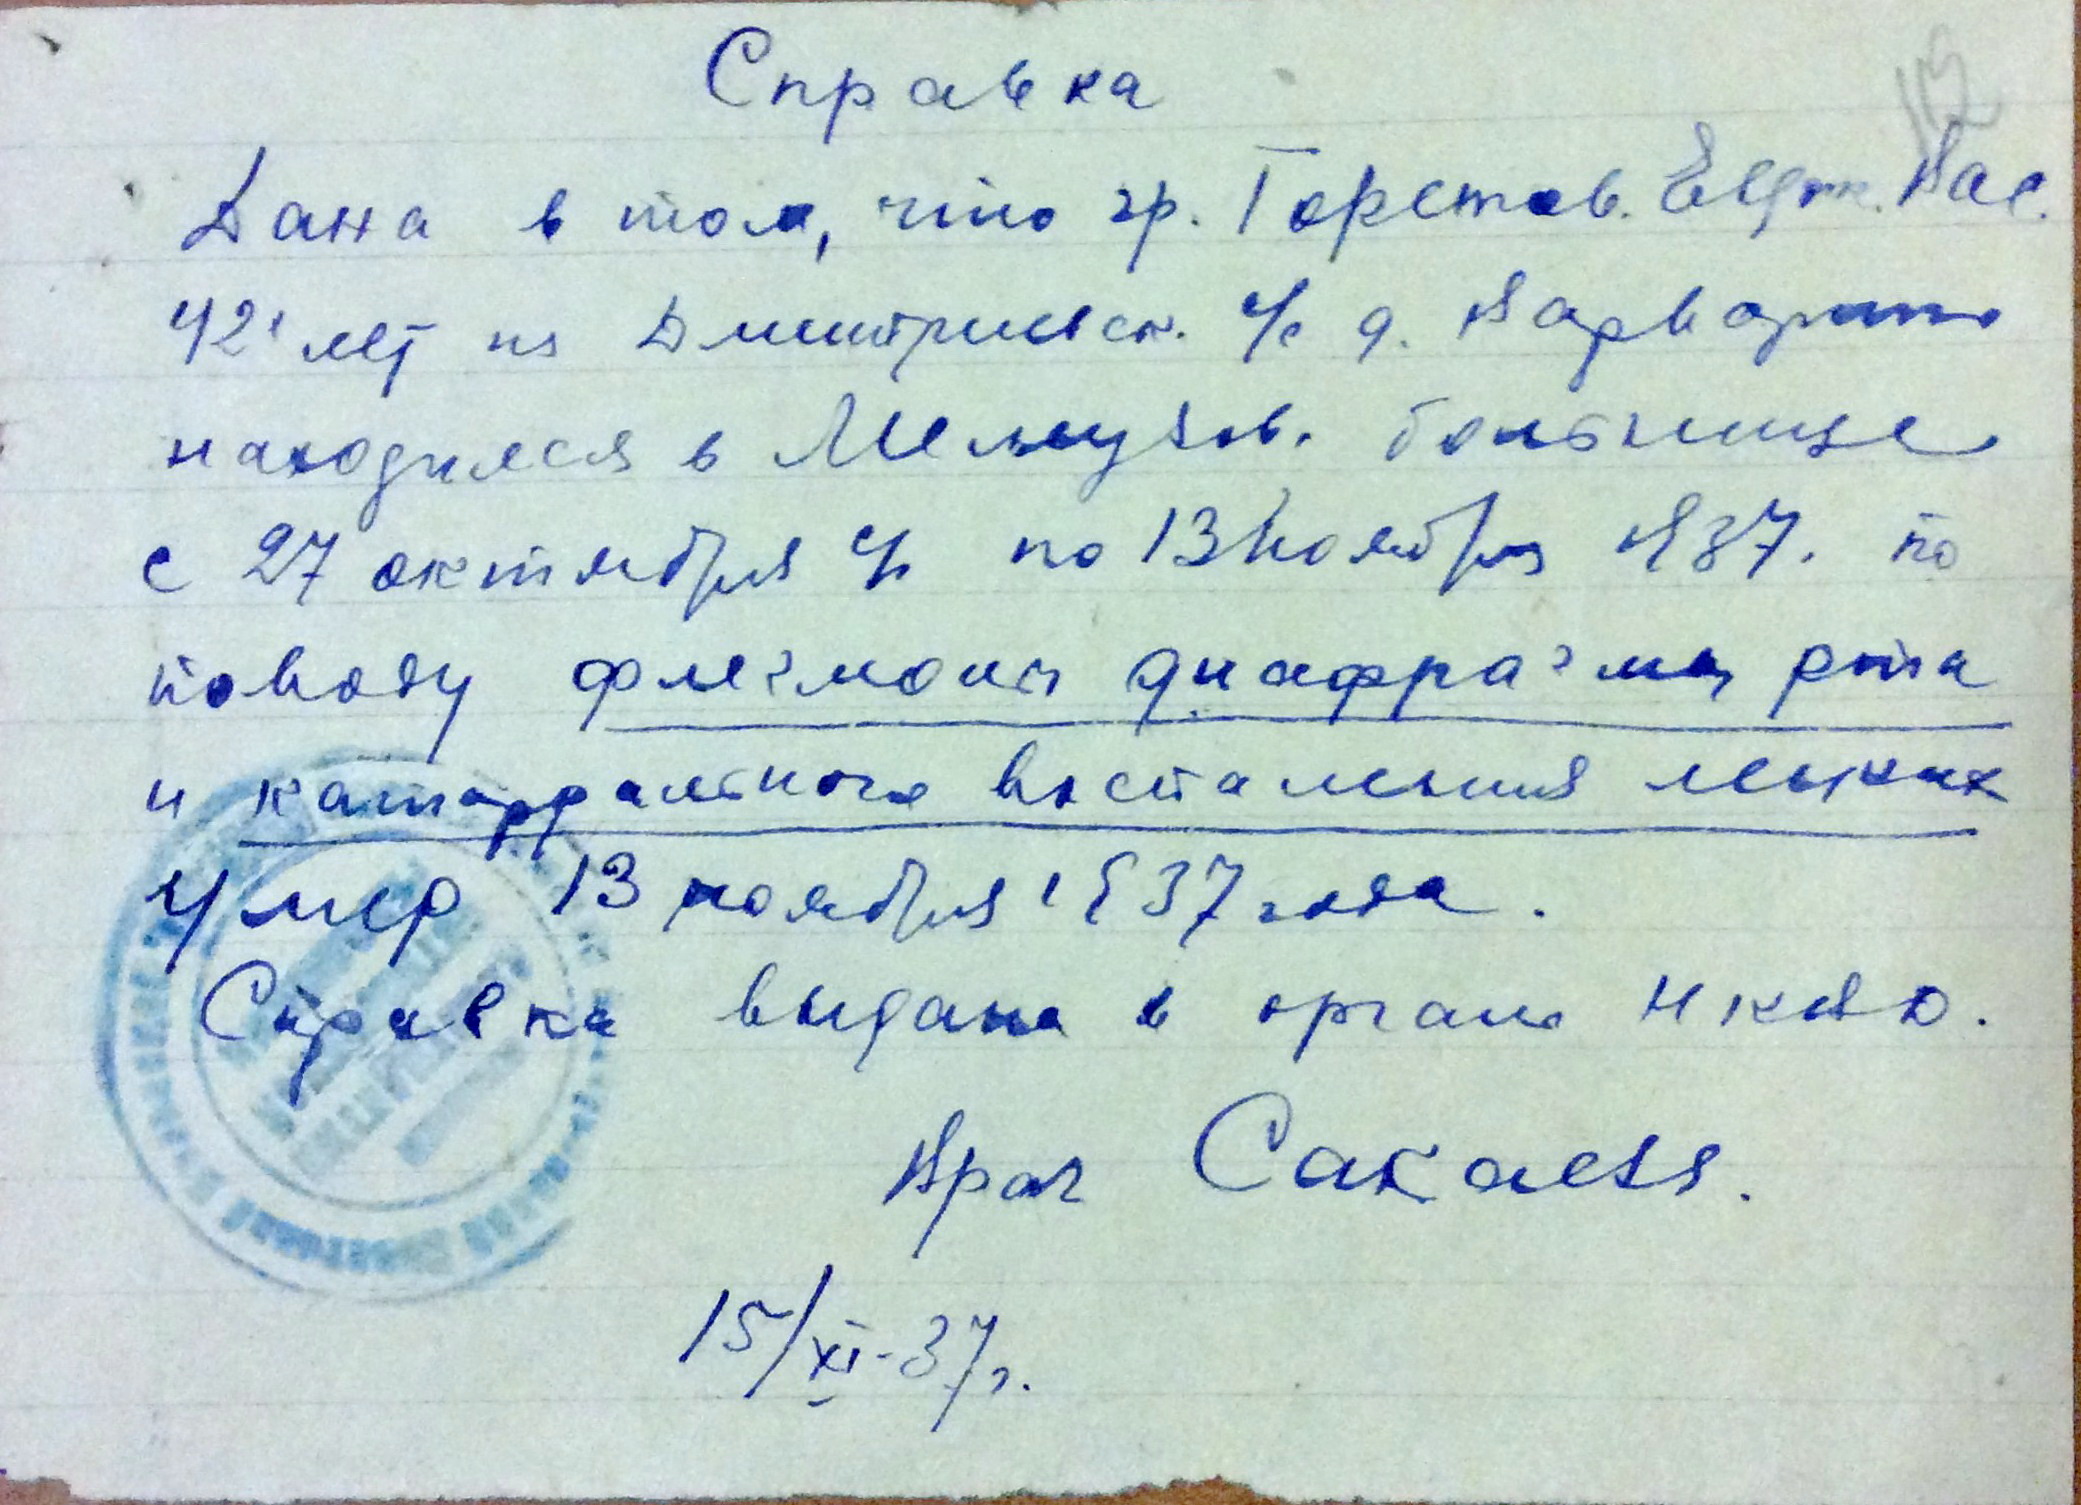 112
Справка
Дана в том, что гр. Горстов. Евдок. Вас.
42 лет из Дмитриевск. с/с д. Варварино
находился в Мелеузов. больнице
с 27 октября с/г по 13 ноября 1937. по
поводу флегмоны диафрагмы рта
и катаррального воспаления легких
умер 13 ноября 1937 года.
Справка выдана в органы НКВД.
Врач Сакаева.
15/XI-37г.